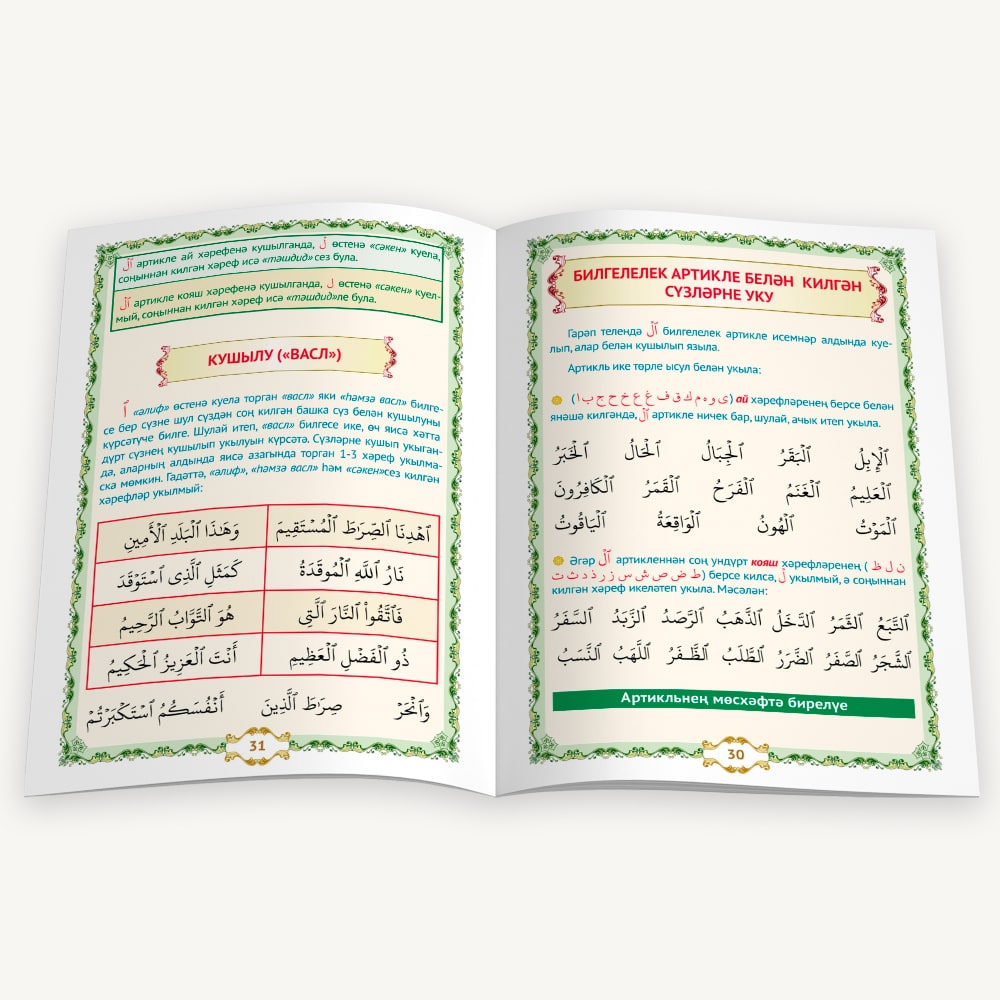 БИЛГЕЛЕЛЕК АРТИКЛЕ БЕЛӘН КИЛГӘН
СҮЗЛӘРНЕ УКУ
Гарәп телендә ٱلْ билгелелек артикле исемнәр алдында куе-
лып, алар белән кушылып языла.
Артикль ике төрле ысул белән укыла:
(ي و ه م ك ق ف غ ع خ ح ج ب ا) ай хәрефләренең берсе белән
янәшә килгәндә, ٱلْ артикле ничек бар, шулай, ачык итеп укыла.
ٱلْإِبِلُ ٱلْبَقَرُ ٱلْجِبَالُ ٱلْخَالُ ٱلْخَبَرُ
ٱلْعَلِيمُ ٱلْغَنَمُ ٱلْفَرَحُ ٱلْقَمَرُ ٱلْكَافِرُونَ
ٱلْمَوْتُ ٱلْهُونُ ٱلْوَاقِعَةُ ٱلْيَاقُوتُ
Әгәр ٱلْ артикленнән соң ундүрт кояш хәрефләренең ( ن ل ظ
ط ض ص ش س ز ر ذ د ث ت) берсе килсә, لْ укылмый, ә соңыннан
килгән хәреф икеләтеп укыла. Мәсәлән:
ٱلتَّبَعُ ٱلثَّمَرُ ٱلدَّخَلُ ٱلذَّهَبُ ٱلرَّصَدُ ٱلزَّبَدُ ٱلسَّفَرُ
ٱلشَّجَرُ ٱلصَّفَرُ ٱلضَّرَرُ ٱلطَّلَبُ ٱلظَّفَرُ ٱللَّهَبُ ٱلنَّسَبُ
Артикльнең мөсхәфтә бирелүе
30
ٱلْ артикле ай хәрефенә кушылганда, لْ өстенә «сәкен» куела,
соңыннан килгән хәреф исә «тәшдид»сез була.
ٱلْ артикле кояш хәрефенә кушылганда, ل өстенә «сәкен» куел-
мый, соңыннан килгән хәреф исә «тәшдид»ле була.
КУШЫЛУ («ВАСЛ»)
ٱ «әлиф» өстенә куела торган «васл» яки «һәмзә васл» билге-
се бер сүзне шул сүздән соң килгән башка сүз белән кушылуны
күрсәтүче билге. Шулай итеп, «васл» билгесе ике, өч яисә хәтта
дүрт сүзнең кушылып укылуын күрсәтә. Сүзләрне кушып укыган-
да, аларның алдында яисә азагында торган 1-3 хәреф укылма-
ска мөмкин. Гадәттә, «әлиф», «һәмзә васл» һәм «сәкен»сез килгән
хәрефләр укылмый:
ٱهْدِنَا ٱلصِّرَٰطَ ٱلْمُسْتَقِيمَ وَهَٰذَا ٱلْبَلَدِ ٱلْأَمِينِ
نَارُ ٱللَّهِ ٱلْمُوقَدَةُ كَمَثَلِ ٱلَّذِى ٱسْتَوْقَدَ
فَٱتَّقُوا۟ ٱلنَّارَ ٱلَّتِى هُوَ ٱلتَّوَّابُ ٱلرَّحِيمُ
ذُو ٱلْفَضْلِ ٱلْعَظِيمِ أَنْتَ ٱلْعَزِيزُ ٱلْحَكِيمُ
وَٱنْحَرْ صِرَٰطَ ٱلَّذِينَ أَنْفُسَكُمُ ٱسْتَكْبَرْتُمْ
31